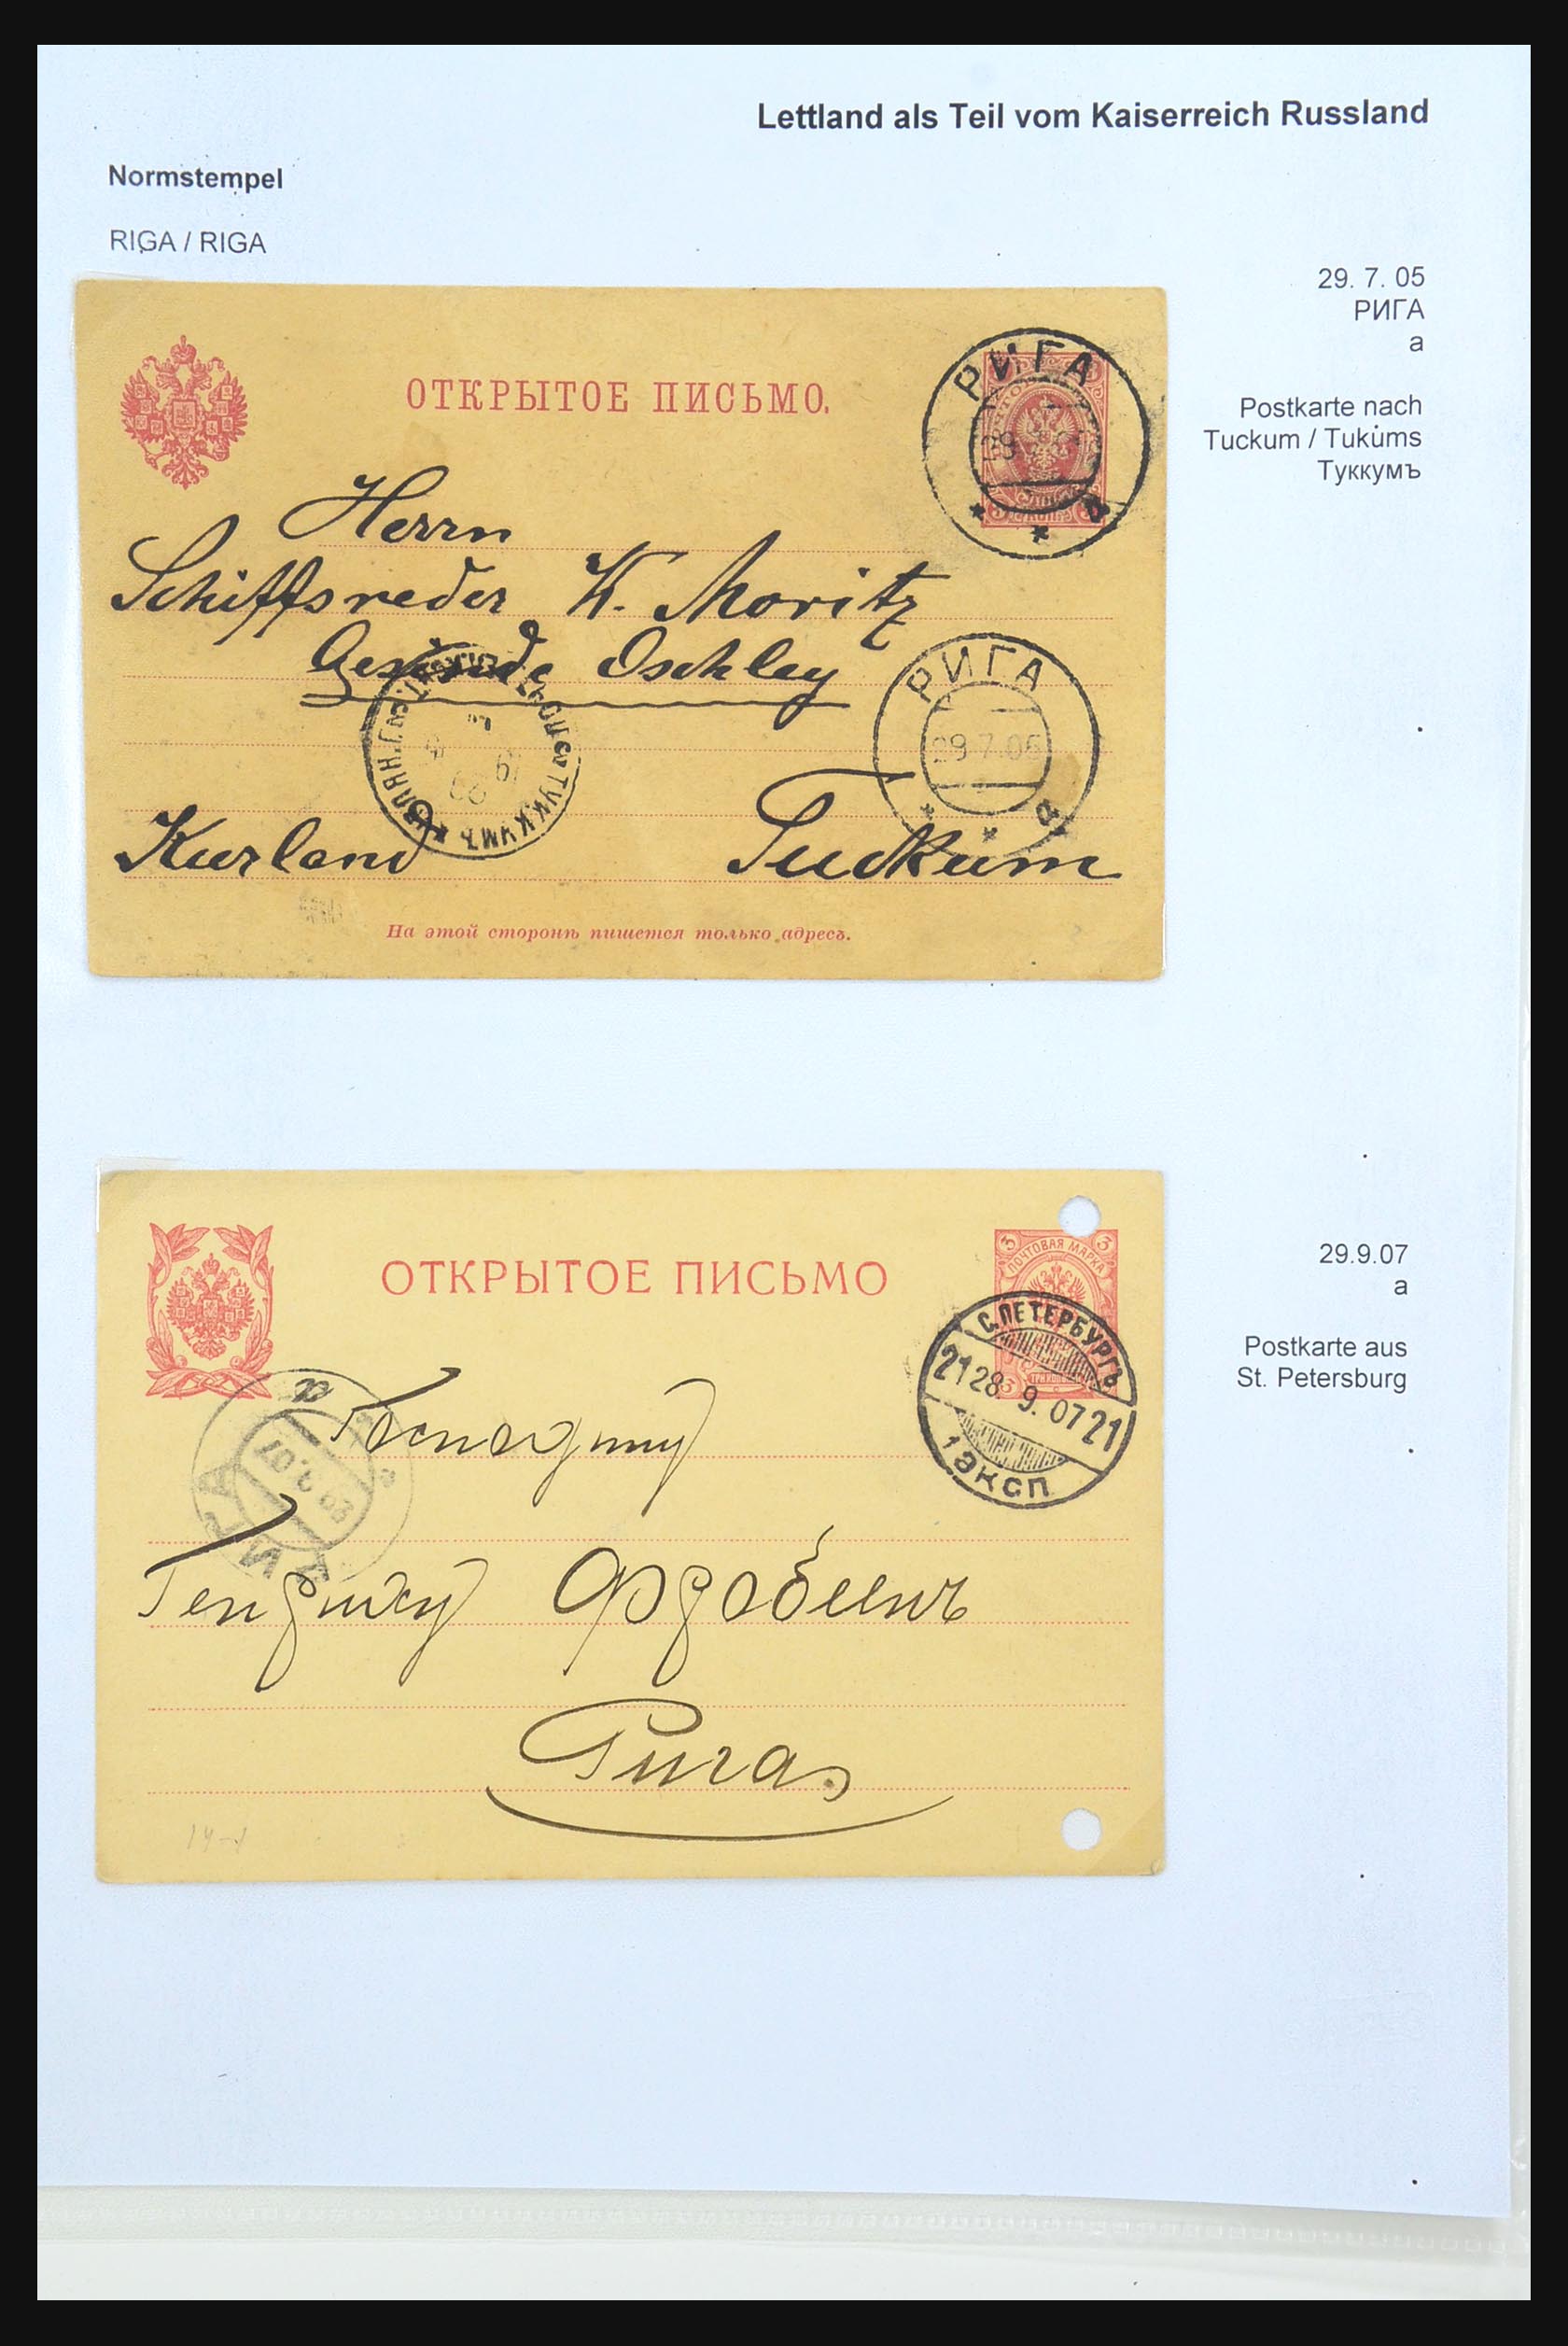 Lettland als Teil vom Kaiserreich Russland
Normstempel
RIGA / RIGA
29. 7. 05
РИГА
a
Postkarte nach
Tuckum / Tukums
Туккумъ
ОТКРЫТОЕ ПИСЬМО.
РИГА
Herrn
Schiffsreder K. Moritz
Gesinde Oschley
РИГА
29.7.05
а
ТУККУМЪ
Kurland Tuckum
На этой сторонѣ пишется только адресъ.
29.9.07
a
Postkarte aus
St. Petersburg
ОТКРЫТОЕ ПИСЬМО
3 ПОЧТОВАЯ МАРКА 3
С.ПЕТЕРБУРГЪ
21 28. 9. 07 21
1 ЭКСП
РИГА
Господину
Гендриху
Рига